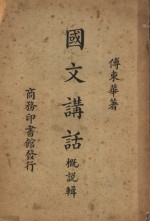 傅東華著
國文講話 概說輯
商務印書館發行